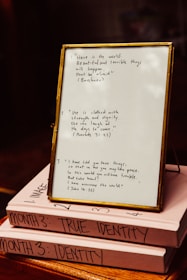 is the world
Beautiful and terrible things
will happen.
Don't be afraid"
(Buechner)
is clothed with
strength and dignity
she can laugh at
the days to come"
(Proverbs 31:25)
"I have told you these things,
so that in me you may have peace.
In this world you will have trouble.
But take heart!
I have overcome the world"
(John 16:33)
MONTH 2: TRUE IDENTITY
MONTH 3: IDENTITY